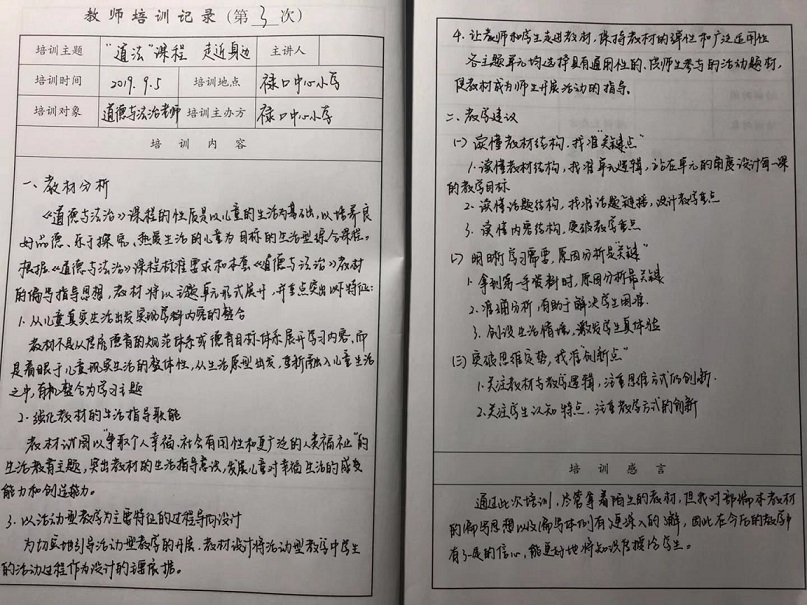 教师培训记录（第 3 次）
培训主题 “道法”课程 走近身边 主讲人
培训时间 2019.9.5 培训地点 禄口中心小学
培训对象 道德与法治老师 培训主办方 禄口中心小学
培训内容
一、教材分析
《道德与法治》课程的性质是以儿童的生活为基础，以培养良
好品德、乐于探究、热爱生活的儿童为目标的生活型综合课程。
根据《道德与法治》课程标准要求和本套《道德与法治》教材
的编写指导思想，教材将以主题单元形式展开，并重点突出以下特征：
1. 从儿童真实生活出发实现学科内容的整合
教材不是从原有德育的规范体系或德育目标体系展开学习内容，而
是着眼于儿童现实生活的整体性，从生活原型出发，重新融入儿童生活
之中，有机整合为学习主题
2. 强化教材的生活指导职能
教材试图以“争取个人幸福、社会有用性和更广泛的人类福祉”的
生活教育主题，突出教材的生活指导意识，发展儿童对幸福生活的感受
能力和创造能力。
3. 以活动型教学为主要特征的过程导向设计
为切实地引导活动型教学的开展，教材设计将活动型教学中学生
的活动过程作为设计的主要依据。
4. 让教师和学生走进教材，保持教材的弹性和广泛适用性
各主题单元均选择具有通用性的、供师生参与的活动题材，
使教材成为师生开展活动的指导。
二、教学建议
(一) 读懂教材结构，找准“关键点”
1. 读懂教材结构，找准单元逻辑，站在单元的角度设计每一课
的教学目标
2. 读懂话题结构，找准话题链接，设计教学重点
3. 读懂内容结构，突破教学重点
(二) 明晰学习需要，原因分析是“关键”
1. 拿到第一手资料时，原因分析是关键
2. 准确分析，有助于解决学生困难
3. 创设生活情境，激发学生真体验
(三) 突破思维定势，找准“创新点”
1. 关注教材与教学逻辑，注重思维方式的创新.
2. 关注学生认知特点，注重教学方式的创新
培训感言
通过此次培训，尽管拿着陌生的教材，但我对部编本教材
的编写思想以及编写体例有更深入的了解，因此在今后的教学中
有了一定的信心，能更好地将知识传授给学生。